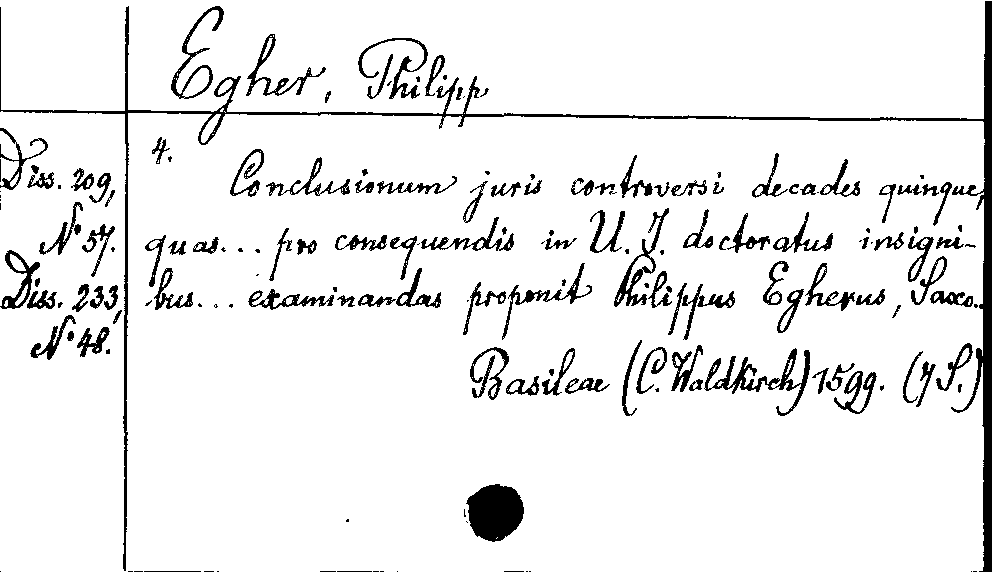 Egher, Philipp
Diss. 209,
No 57.
Diss. 233,
No 48.
4.
Conclusionum juris controversi decades quinque,
quas... pro consequendis in U. J. doctoratus insigni-
bus... examinandas proponit Philippus Egherus, Saxo..
Basileae (C. Waldkirch) 1599. (7 S.)